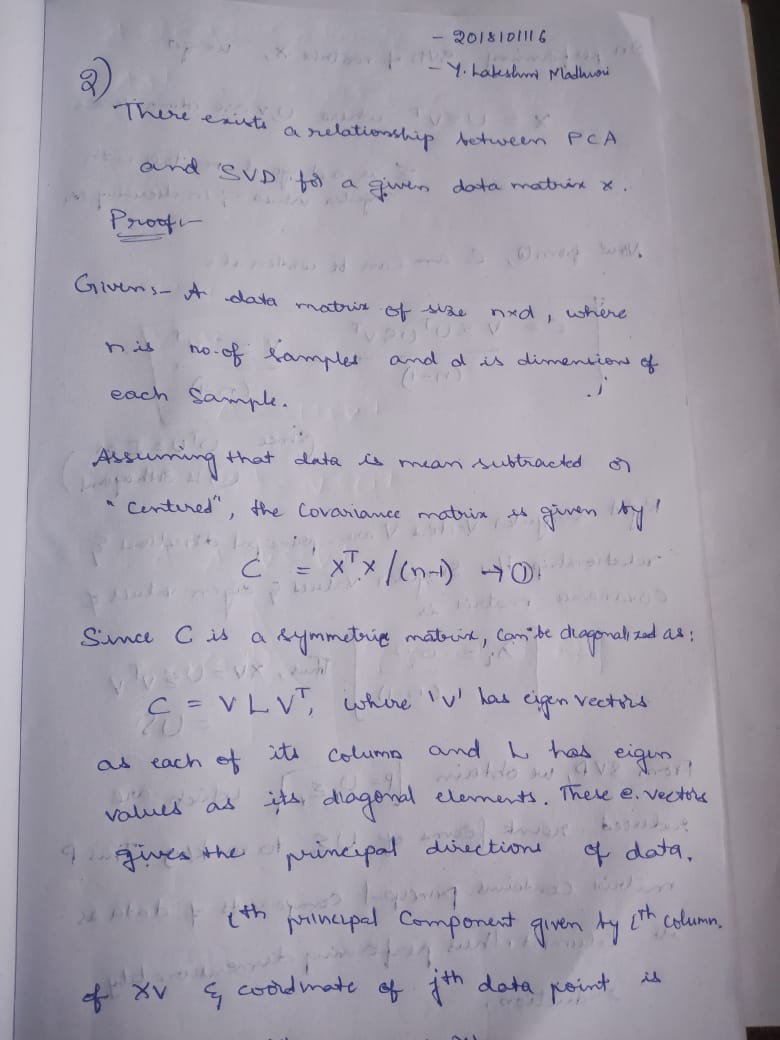 - 2018101116
- Y. Lakshmi Madhuri
2)
There exists a relationship between PCA
and SVD for a given data matrix x.
Proof:-
Given:- A data matrix of size n×d, where
n is no. of samples and d is dimension of
each sample.
Assuming that data is mean subtracted or
"centered", the covariance matrix is given by
C = XᵀX/(n-1) → ①
Since C is a symmetric matrix, can be diagonalized as:
C = V L Vᵀ, where 'V' has eigen vectors
as each of its column and L has eigen
values as its diagonal elements. These e. vectors
gives the principal directions of data.
ith principal component given by ith column
of XV & coordinate of jth data point is